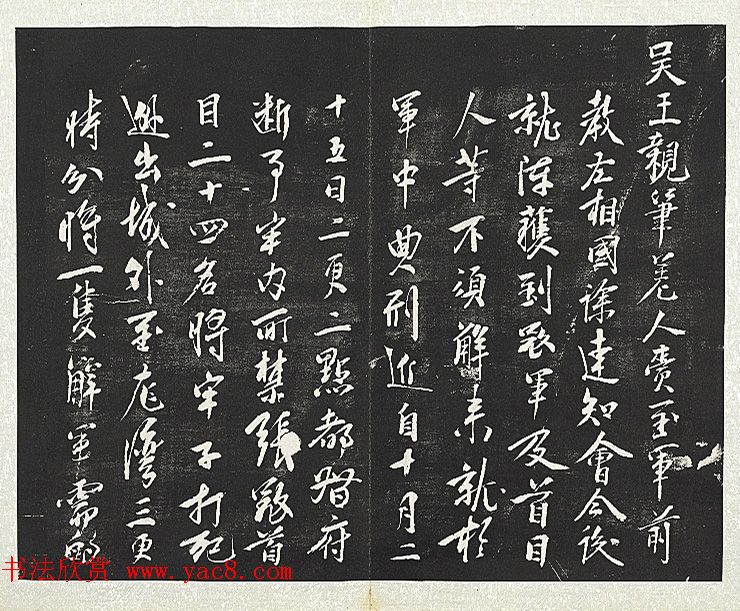 吴王親筆差人賫至軍前
教左相國徐達知會今後
就陣獲到寇軍及首目
人等不須解來就於
軍中典刑近自十月二
十五日二更二點都督府
斷事牢內所禁張寇首
目二十四名將牢子打死
逃出城外至龙灣三更
時分將一隻解軍需的
书法欣赏 www.yac8.com